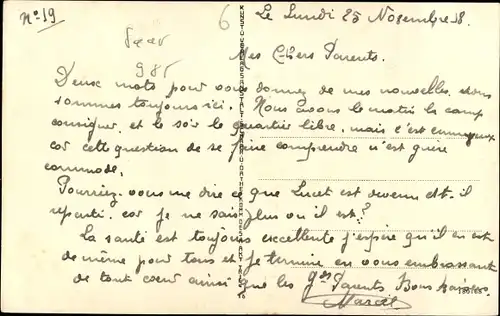 N°19
6
Le Lundi 25 Novembre 18.
Saar
985
Mes Chers Parents.
Deux mots pour vous donner de mes nouvelles. Nous
sommes toujours ici. Nous avons le matin le camp
consigner, et le soir le quartier libre, mais c'est ennuyeux
car cette question de se faire comprendre n'est guère
commode.
Pourriez-vous me dire ce que Lucet est devenu est-il
reparti, car je ne sais plus ou il est?
La santé est toujours excellente j'espère qu'il en est
de même pour tous et je termine en vous embrassant
de tout cœur ainsi que les gds Parents. Bons baisers
Marcel